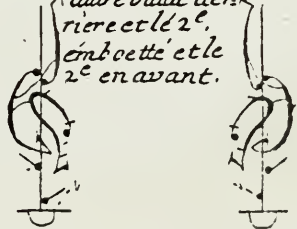 riere et lé 2e.
emboetté et le
2e en avant.